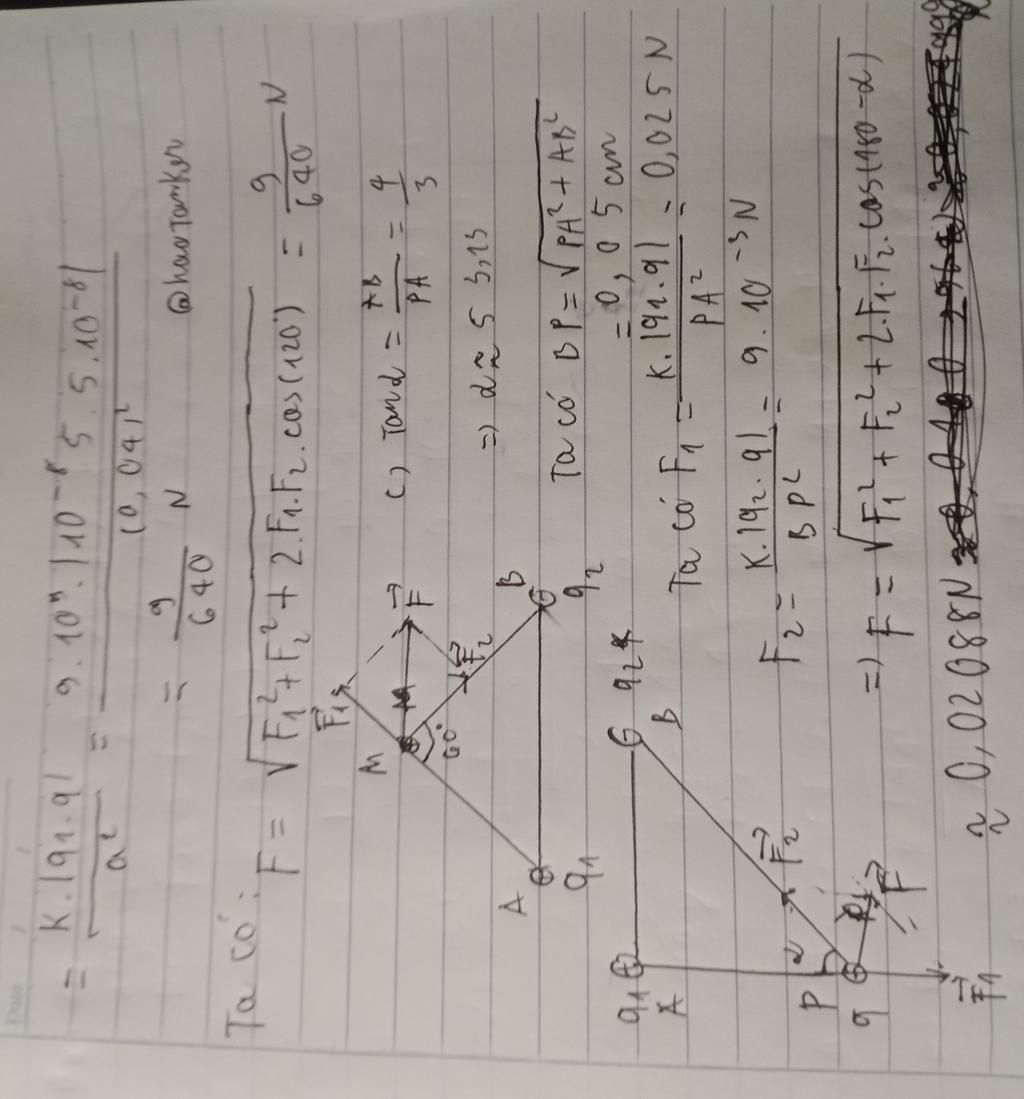 Date
= K.|q1.q| / a² = 9.10⁹.|10⁻⁸.5.5.10⁻⁸| / (0,04)²
= 9/640 N @haoTamken
Ta có:
F = √F₁²+F₂²+2.F₁.F₂.cos(120°) = 9/640 N
M
60°
F₁
F
F₂
A
q1
B
q2
c, Tanα = AB/PA = 4/3
=> α ≈ 53,13
Ta có BP = √PA² + AB²
= 0,05 cm
Ta có F₁ = K.|q1.q| / PA² = 0,025 N
F₂ = K.|q2.q| / BP² = 9.10⁻³ N
q1
A
q2
B
P
α
q
F₂
F
F₁
=> F = √F₁² + F₂² + 2.F₁.F₂.cos(180-α)
≈ 0,02088N